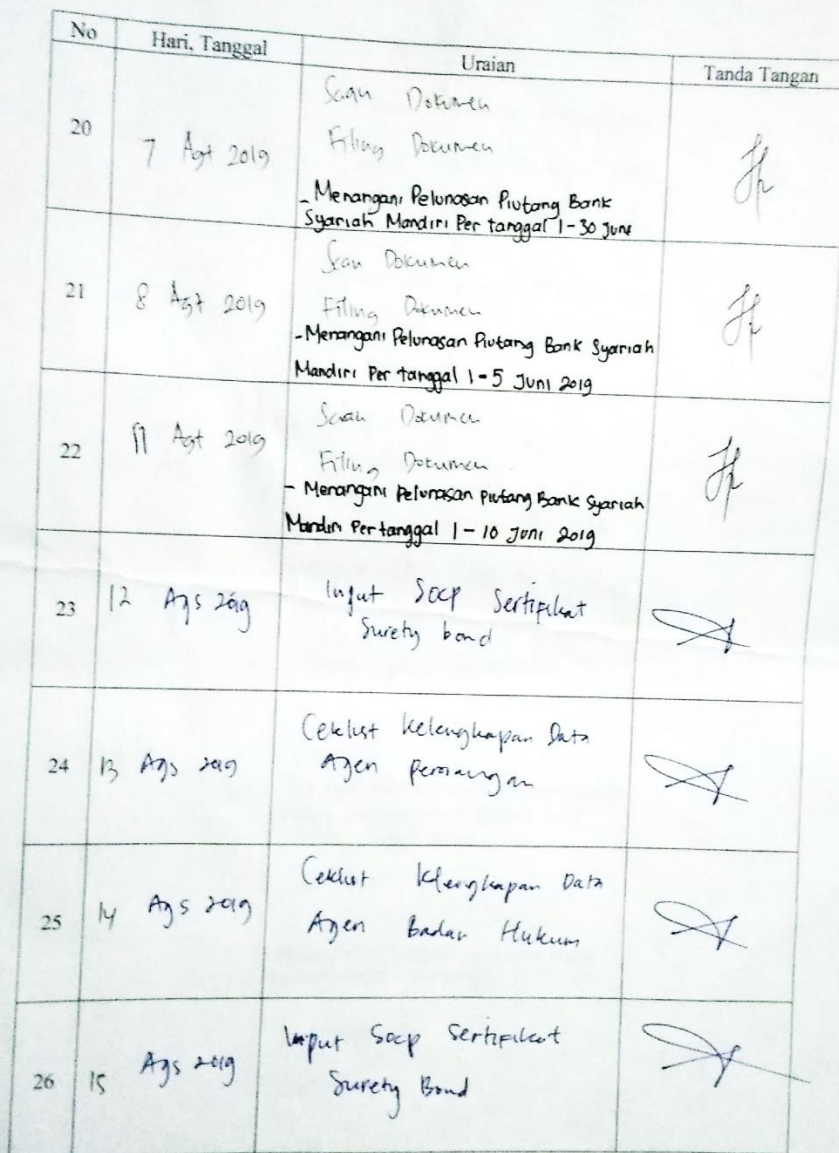 No Hari, Tanggal Uraian Tanda Tangan
20 7 Agt 2019 Scan Dokumen
Filing Dokumen
- Menangani Pelunasan Piutang Bank
Syariah Mandiri Per tanggal 1-30 Juni
21 8 Agt 2019 Scan Dokumen
Filing Dokumen
- Menangani Pelunasan Piutang Bank Syariah
Mandiri Per tanggal 1-5 Juni 2019
22 11 Agt 2019 Scan Dokumen
Filing Dokumen
- Menangani Pelunasan Piutang Bank Syariah
Mandiri Per tanggal 1-10 Juni 2019
23 12 Ags 2019 Input Socp Sertifikat
Surety bond
24 13 Ags 2019 Ceklist Kelengkapan Data
Agen
25 14 Ags 2019 Ceklist Klengkapan Data
Agen Badan Hukum
26 15 Ags 2019 Input Socp Sertifikat
Surety Bond